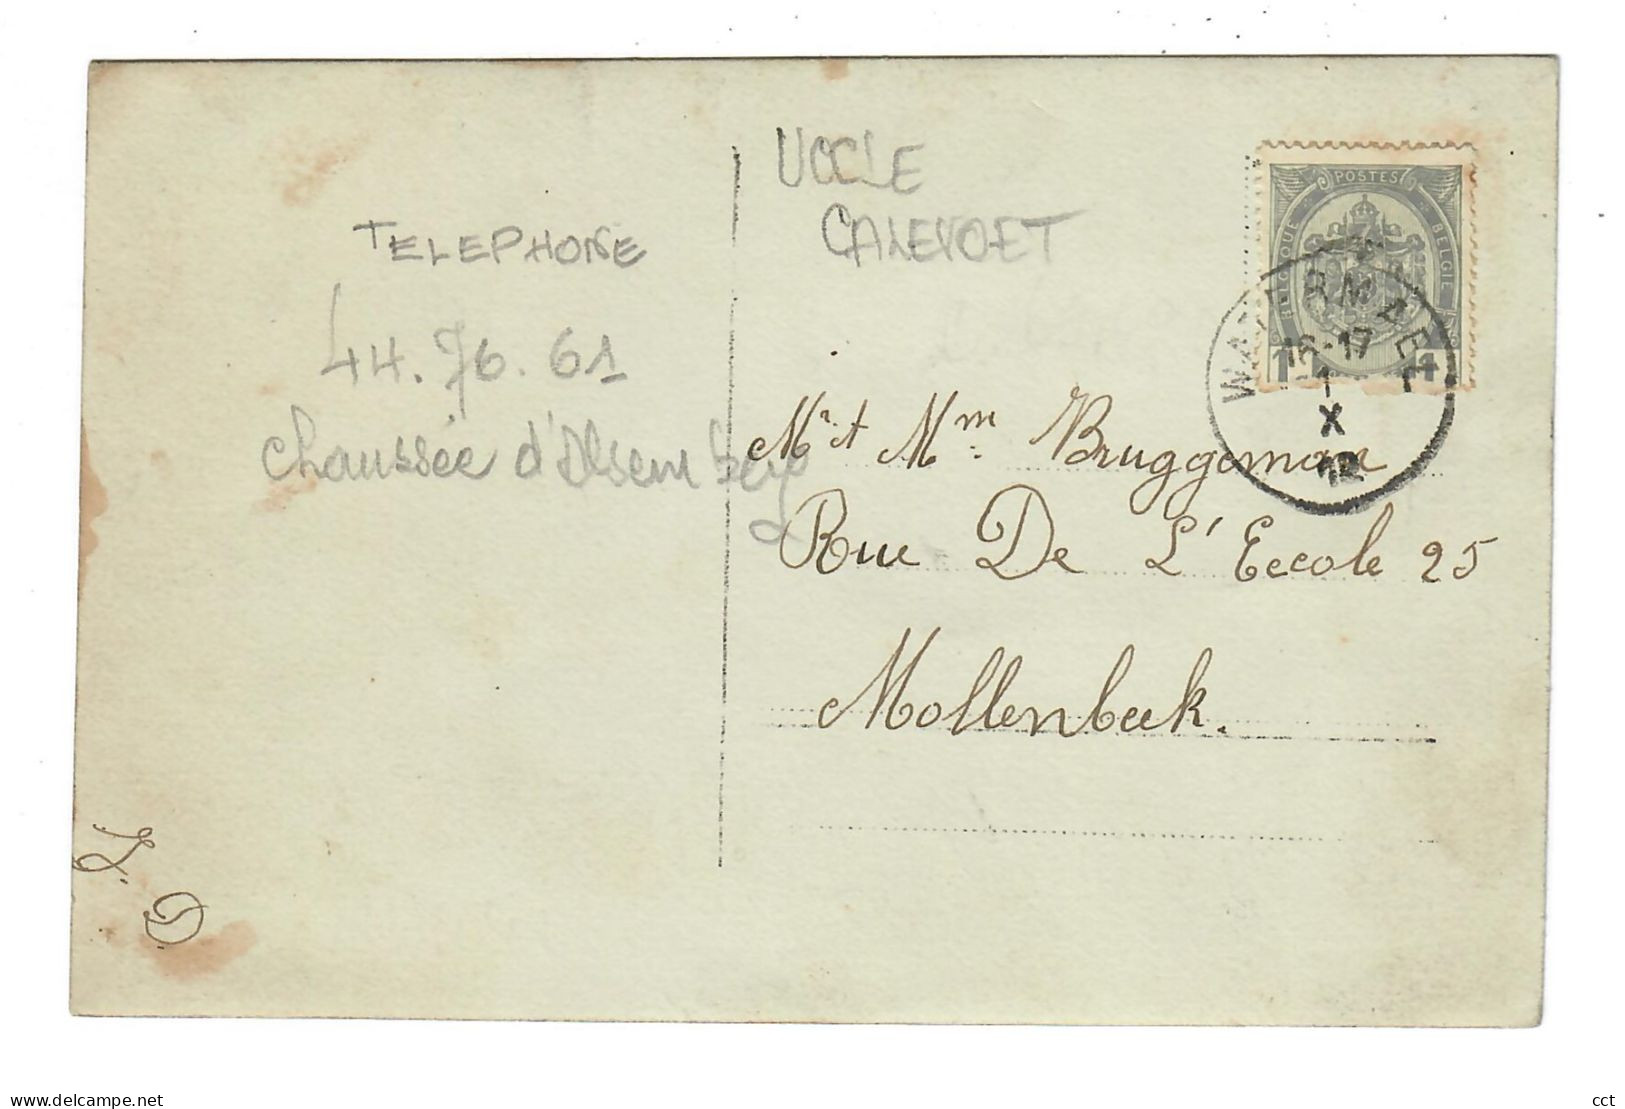 UCCLE
CALEVOET
TELEPHONE
44.76.61
chaussée d'Alsemberg
POSTES
BELGIQUE
BELGIE
1 1
WATERMAEL
16-17
1
X
12
Mr et Mm Bruggeman
Rue De L'Eecole 25
Mollenbeek.
Z. D
www.delcampe.net
cct